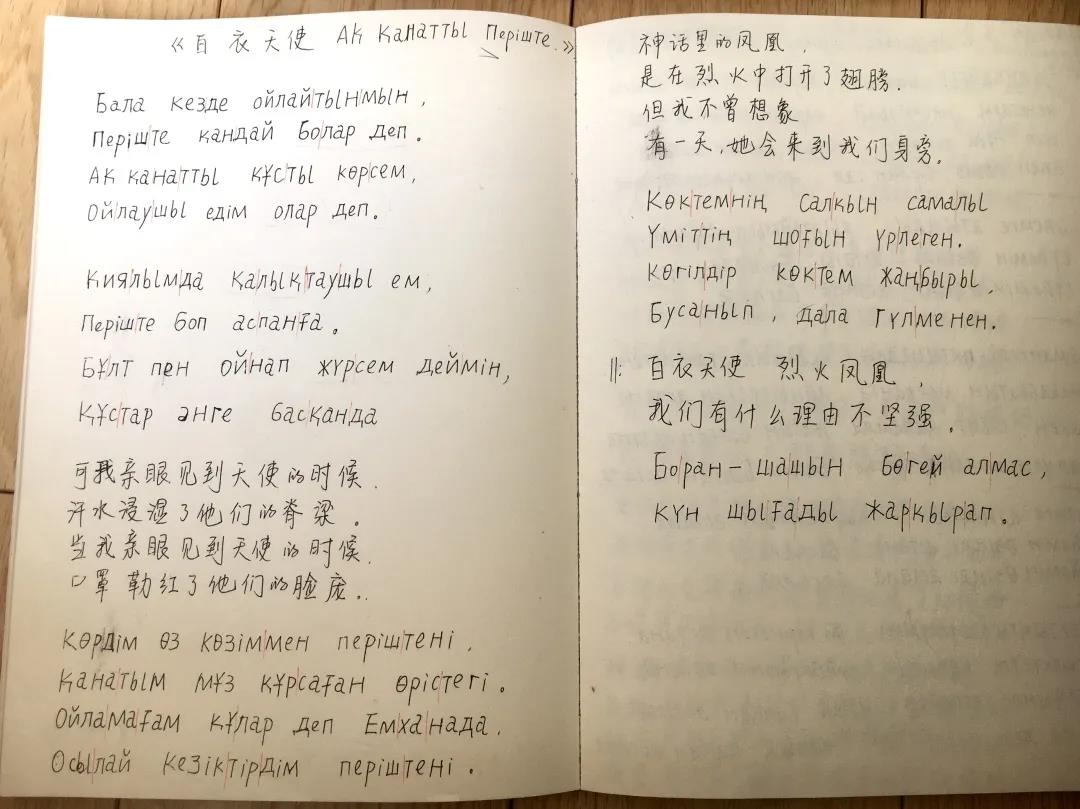 《百衣天使 Ақ қанатты Періште.》
Бала кезде ойлайтынмын,
Періште қандай болар деп.
Ақ қанатты құсты көрсем,
Ойлаушы едім олар деп.
Қиялымда қалықтаушы ем,
Періште боп аспанға.
Бұлт пен ойнап жүрсем деймін,
Құстар әнге басқанда
可我亲眼见到天使的时候.
汗水浸湿了他们的脊梁.
当我亲眼见到天使的时候.
口罩勒红了他们的脸庞..
Көрдім өз көзіммен періштені.
Қанатым мұз құрсаған өрістегі.
Ойламағам құлар деп Емханада.
Осылай кезіктірдім періштені.
神话里的凤凰,
是在烈火中打开了翅膀.
但我不曾想象
有一天,她会来到我们身旁.
Көктемнің салқын самалы
Үміттің шоғын үрлеген.
Көгілдір көктем жаңбыры,
Бусанып, дала гүлменен.
||: 百衣天使 烈火凤凰,
我们有什么理由不坚强.
Боран-шашын бөгей алмас,
күн шығады жарқырап.